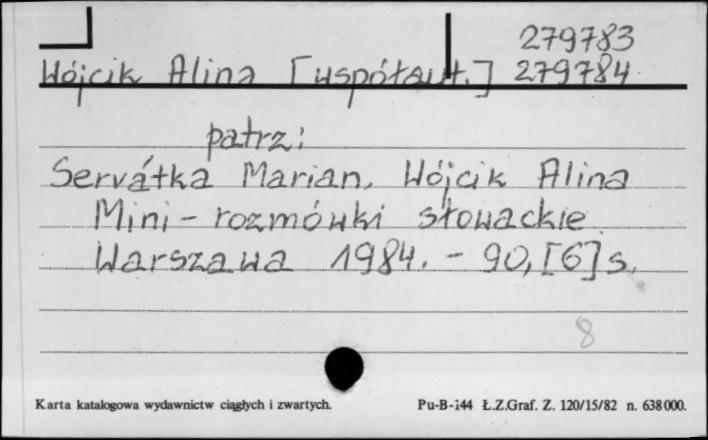 279783
Wójcik Alina [współaut.] 279784
patrz:
Servátka Marian, Wójcik Alina
Mini-rozmówki słowackie
Warszawa 1984. - 90,[6]s.
8
Karta katalogowa wydawnictw ciągłych i zwartych. Pu-B-144 Ł.Z.Graf. Z. 120/15/82 n. 638000.